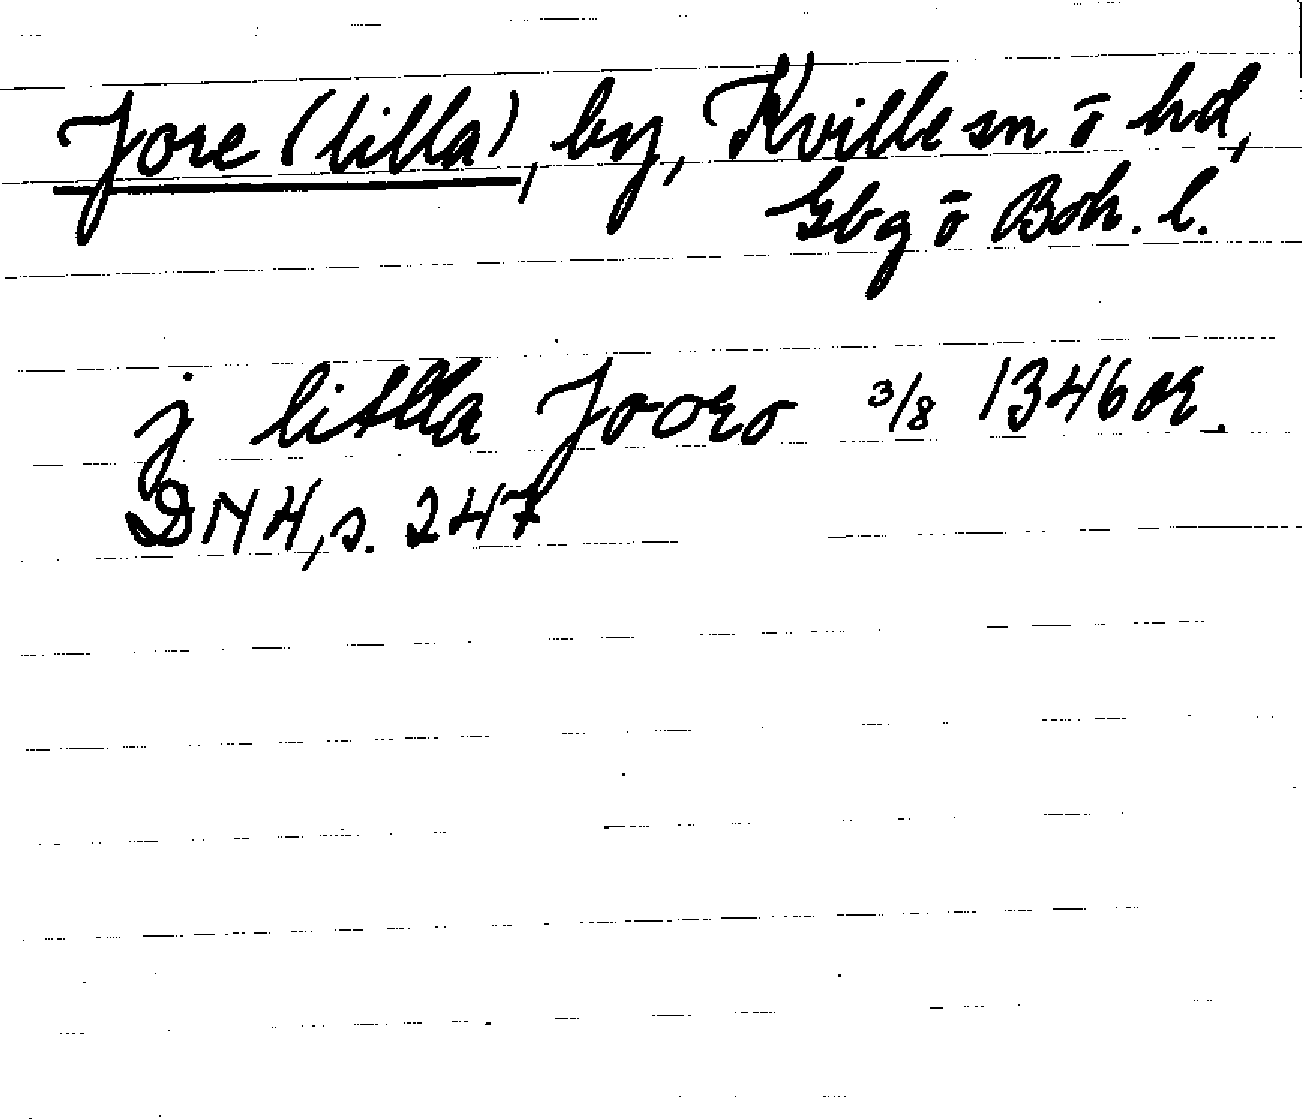 Jore (lilla), by, Kville sn ö hd,
Gbg ö Boh. l.
j litlla Jooro 3/8 1346 or.
DN 4, s. 247